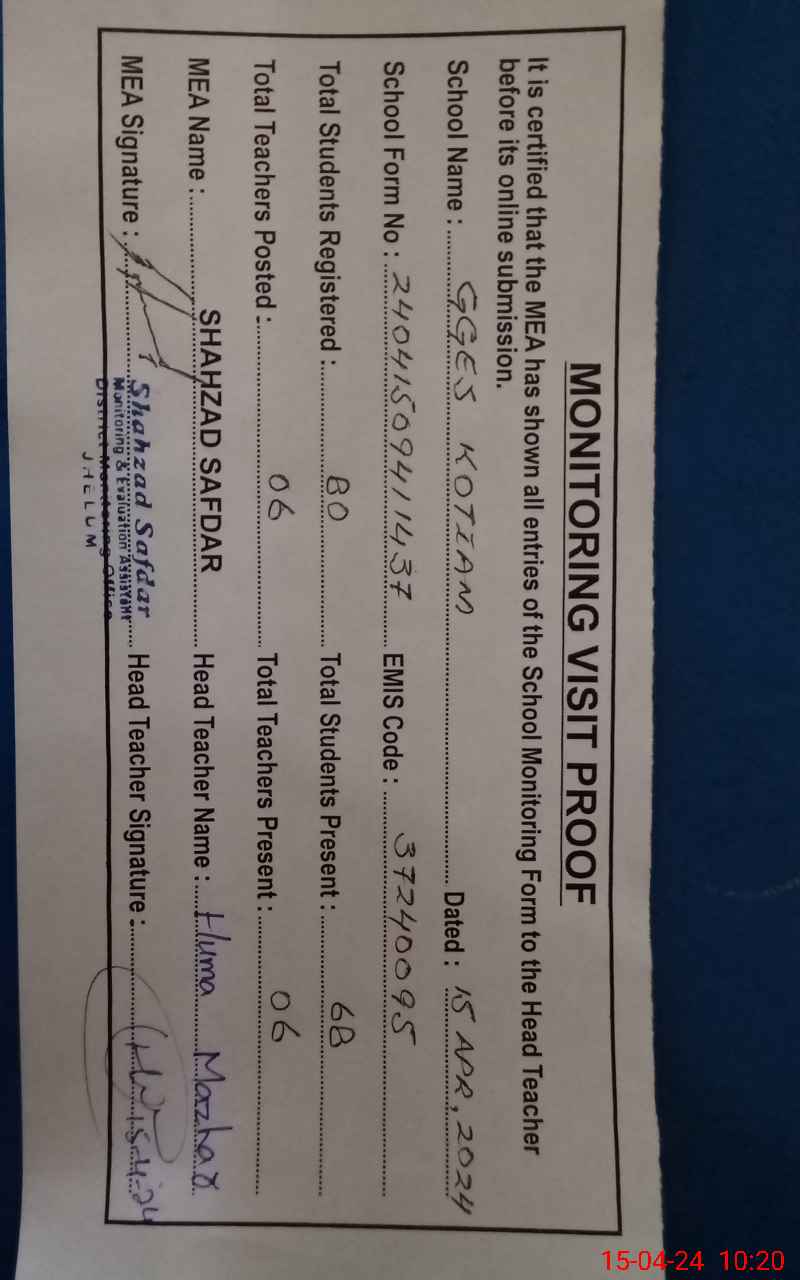 MONITORING VISIT PROOF
It is certified that the MEA has shown all entries of the School Monitoring Form to the Head Teacher
before its online submission.
School Name : GGES KOTIAM Dated : 15 APR, 2024
School Form No : 24041509411437 EMIS Code : 37240095
Total Students Registered : 80 Total Students Present : 68
Total Teachers Posted : 06 Total Teachers Present : 06
MEA Name : SHAHZAD SAFDAR Head Teacher Name : Huma Mazhar
MEA Signature : Head Teacher Signature : 15-4-24
Shahzad Safdar
Monitoring & Evaluation Assistant
District Monitoring Office
JHELUM
15-04-24 10:20